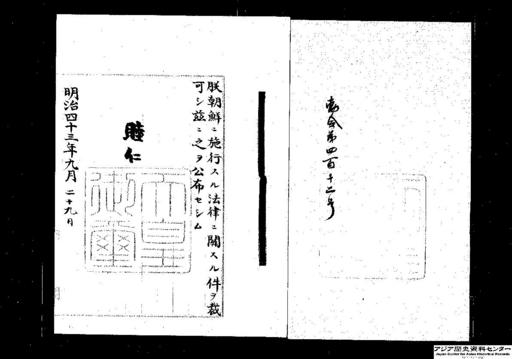 勅令第四百十二号
朕朝鮮ニ施行スル法律ニ關スル件ヲ裁
可シ茲ニ之ヲ公布セシム
睦仁
天皇御璽
明治四十三年九月二十九日
アジア歴史資料センター
Japan Center for Asian Historical Records